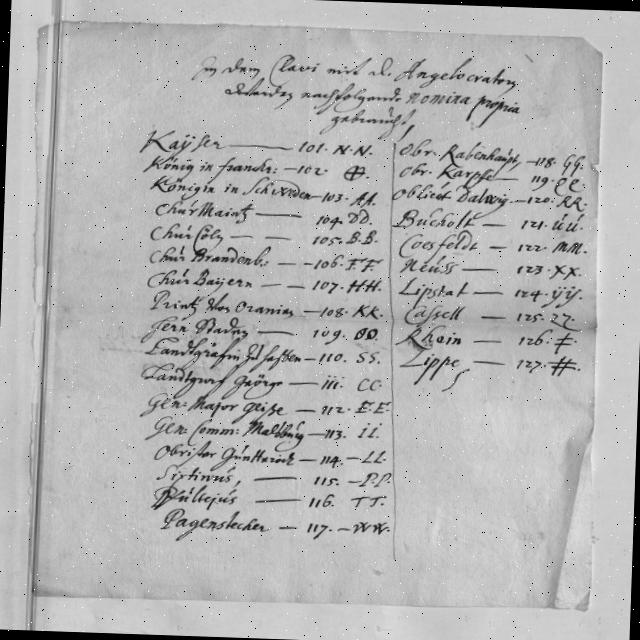 In dem Clavi mit d. Angelocrator
werden nachfolgende nomina propria
gebraucht,
Kaÿser — 101. N.N.
König in franckr. — 102
Königin in Schweden — 103. AA.
Chur Maintz — 104. DD.
Chur Cöln — 105. B.B.
Chur Brandenb: — 106. F.F.
Chur Baÿern — 107. HH.
Printz von Oranien — 108. KK.
Herrn Staden — 109. OO.
Landtgräfin zu Hessen — 110. SS.
Landtgraf Geörge — 111. CC.
Gen: Major Geÿse — 112. E.E.
Gen: Comm: — 113. I.I.
Obrister Günterode — 114. — LL.
Sixtinus, — 115. — P.P.
Vultejus — 116. TT.
Pagenstecher — 117. — WW.
Obr. Rabenhaupt, — 118. GG.
Obr. Karpfe — 119.
Obliet Dalwig — 120. RR.
Bucholt — 121. ÚÚ.
Coesfeldt — 122. MM.
Neüss — 123. XX.
Lipstat — 124. ÿÿ.
Cassell — 125. ZZ.
Rhein — 126. ‡.
Lippe — 127. #.